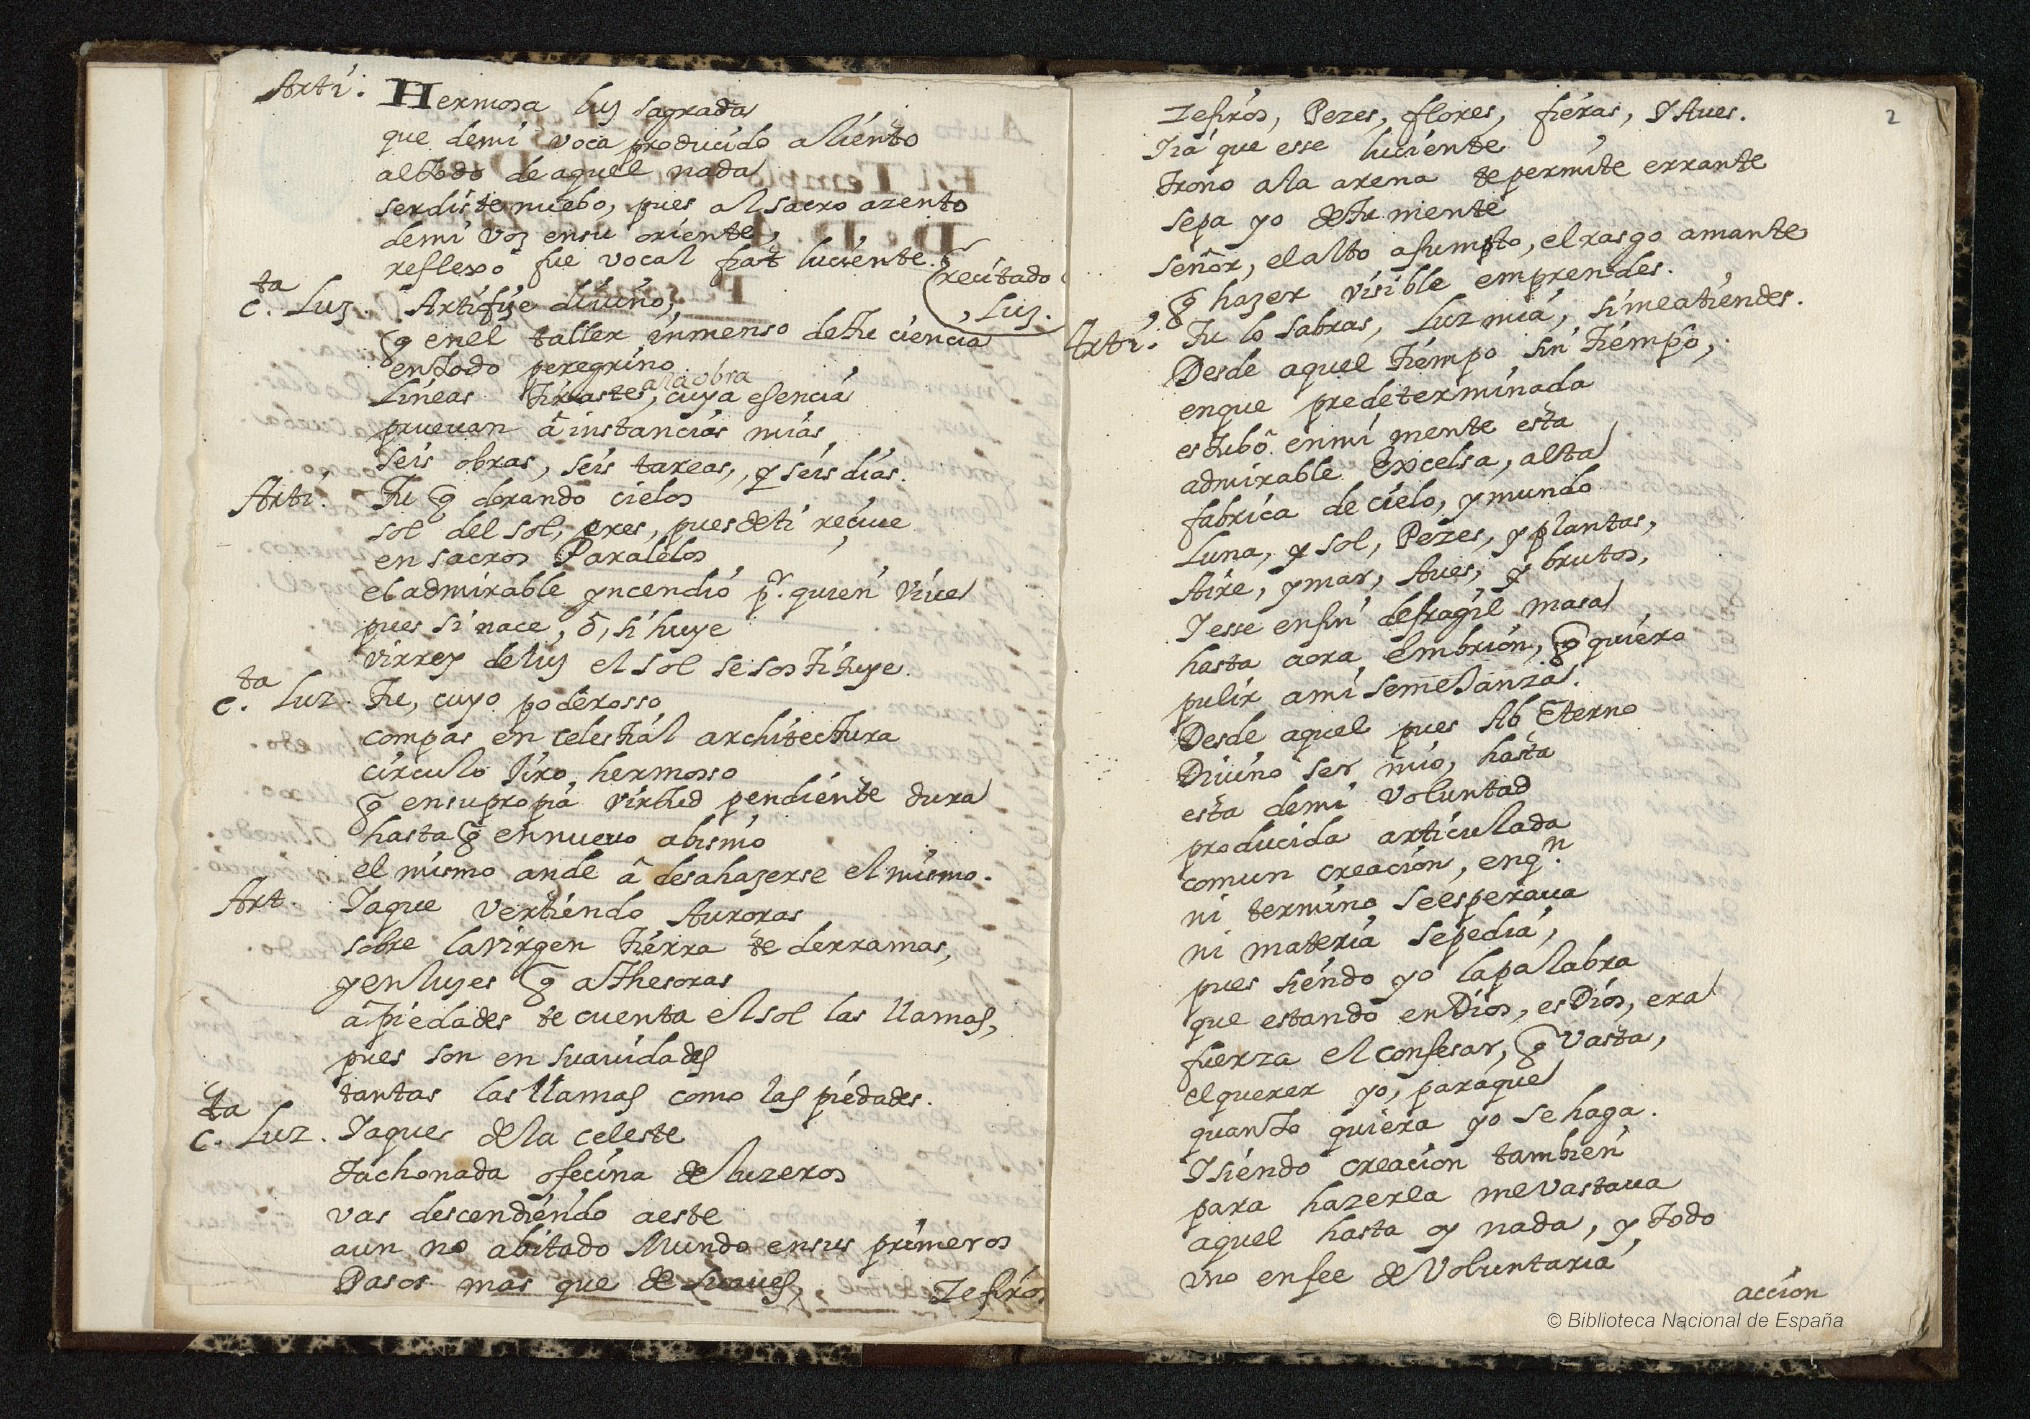 Arti. Hermosa luz sagrada
que demi voca producido aliento
al todo de aquel nada
serdiste nuebo, pues al sacro azento
demi voz ensu oriente,
reflexo fue vocal fiat luciente.
(recitado
Luz.
c.ta Luz. Artifize diuino,
q enel taller inmenso detu ciencia
entodo peregrino
lineas tiraste, a la obra cuya esencia
prueuan â instancias mias
seis obras, seis tareas, y seis dias.
Arti. Tu q dorando cielos
sol del sol, eres, pues deti reciue
en sacros Paralelos
el admirable yncendio pr. quien viue
pues si nace, ô, si huye
virrey deluz el sol se sostituye.
c.ta Luz. Tu, cuyo poderosso
compas en celestial architectura
circulo jiro hermosso
q ensu propia virtud pendiente dura
hasta q en nueuo abismo
el mismo ande â desahazerse el mismo.
Art. Iaque vertiendo Auroras
sobre la virgen tierra te derramas,
y en luzes q athesoras
a piedades te cuenta el sol las llamas,
pues son en suauidades
tantas las llamas como las piedades.
c.ta Luz. Iaque dela celeste
tachonada ofecina de luzeros
vas descendiendo aeste
aun no abitado Mundo ensus primeros
Pasos mas que de suaues,
Zefiros
2
Zefiros, Pezes, flores, fieras, y Aues.
Iia que esse luciente
trono ala arena te permite errante
sepa yo de tu mente
señor, el alto asumpto, el rasgo amante
q hazer visible emprendes.
Arti. Tu lo sabras, Luz mia, si me atiendes.
Desde aquel tiempo sin tiempo,
enque predeterminada
estubo enmi mente esta
admirable Excelsa, alta
fabrica de cielo, y mundo
Luna, y sol, Pezes, y plantas,
Aire, y mar, Aues, y brutos,
I esse enfin defragil masa
hasta aora embrion, q quiero
pulir ami semeJanza.
Desde aquel pues Ab Eterno
Diuino ser mio, hasta
esta demi voluntad
producida articulada
comun creacion, enq.n
ni termino se esperaua
ni materia se pedia,
pues siendo yo la palabra
que estando en Dios, es Dios, era
fuerza el confesar, q vasta,
el querer yo, para que
quanto quiera yo se haga.
I siendo creacion tambien
para hazerla me vastaua
aquel hasta oy nada, y todo
vno enfee de voluntaria
accion
© Biblioteca Nacional de España